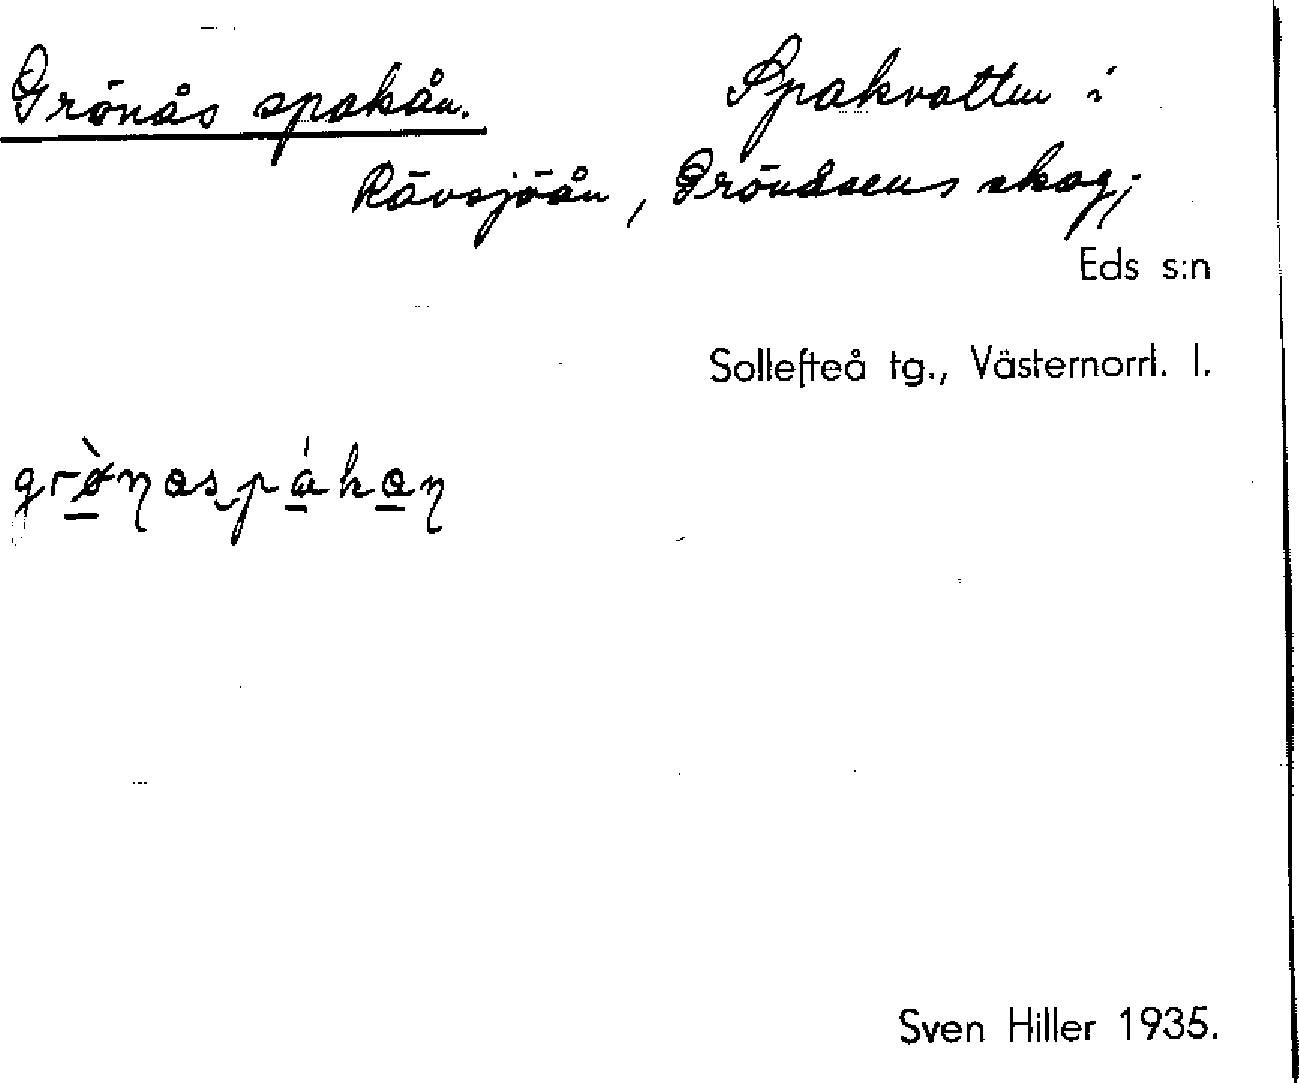 Grönås spakån. Spakvatten i
Rävsjöån, Grönåsens skog,
Eds s:n
Sollefteå tg., Västernorrl. l.
Sven Hiller 1935.